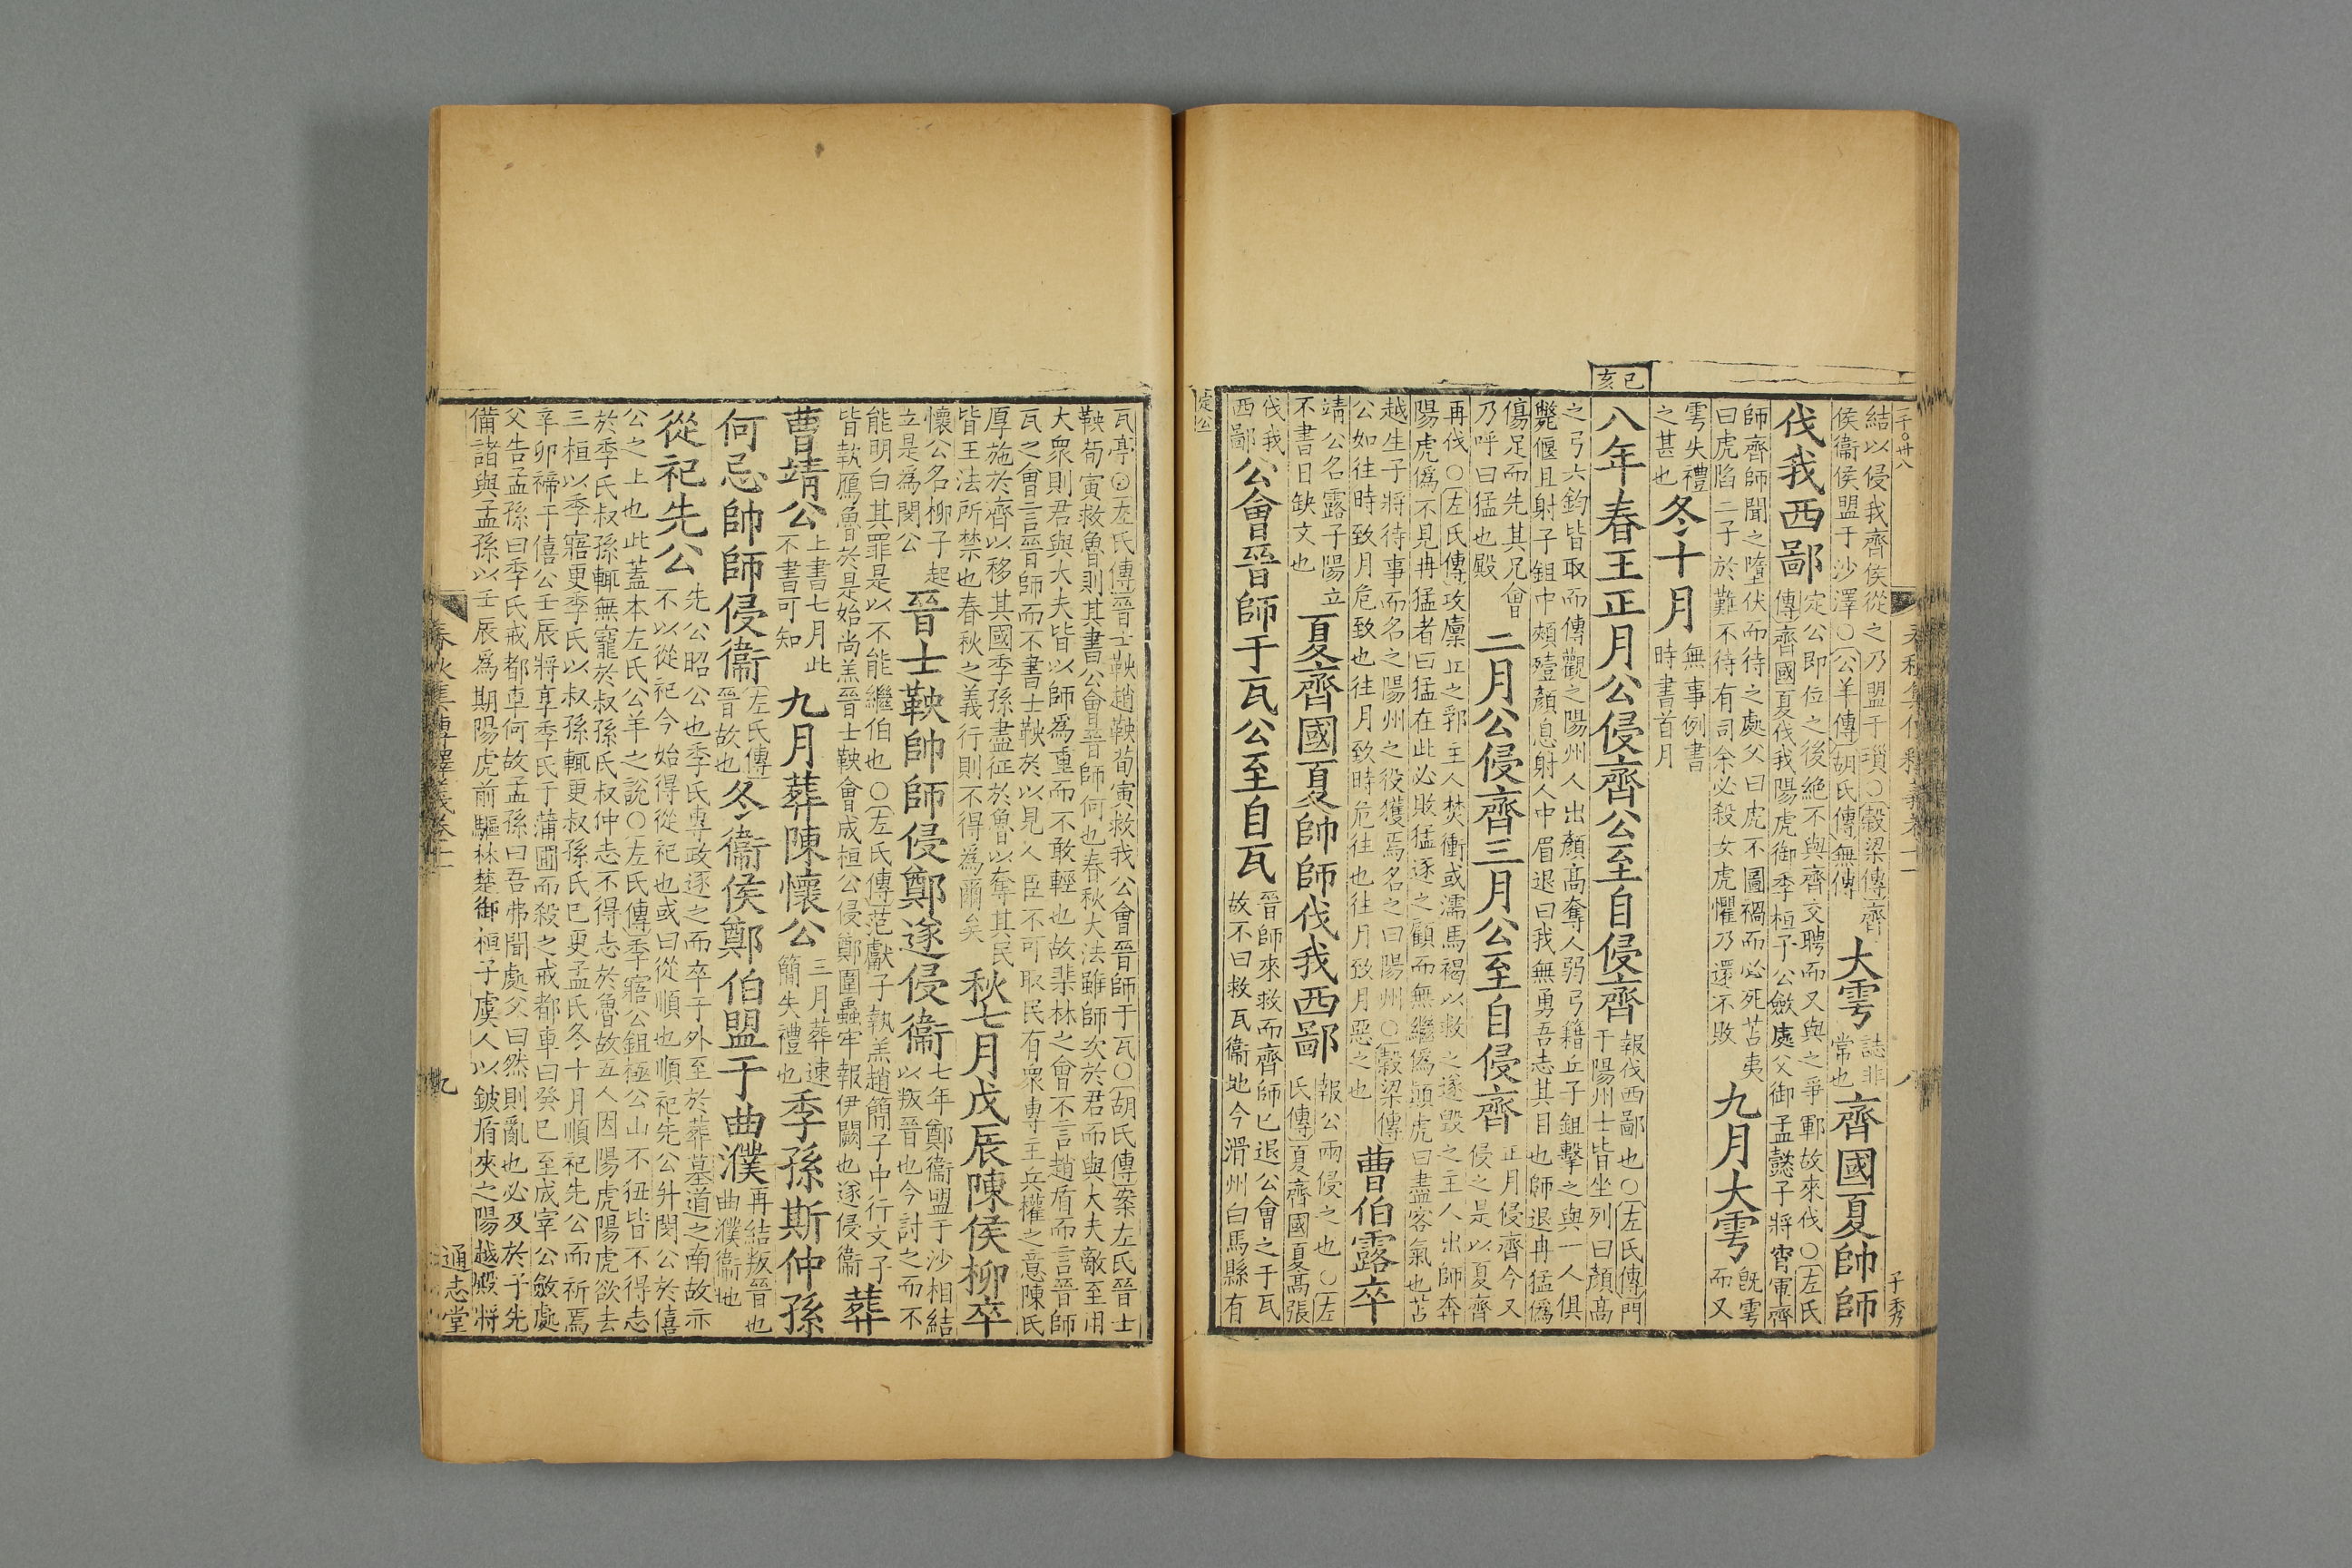 子秀
八
結以侵我齊侯從之乃盟于瑣○穀梁傳齊
侯衞侯盟于沙澤○公羊傳胡氏傳無傳
大雩
誌非
常也
齊國夏帥師
伐我西鄙
定公即位之後絶不與齊交聘而又與之爭鄆故來伐○左氏
傳齊國夏伐我陽虎御季桓子公斂處父御孟懿子將宵軍齊
師齊師聞之墮伏而待之處父曰虎不圖禍而必死苫夷
曰虎陷二子於難不待有司余必殺女虎懼乃還不敗
九月大雩
旣雩
而又
雩失禮
之甚也
冬十月
無事例書
時書首月
己亥
八年春王正月公侵齊公至自侵齊
報伐西鄙也○左氏傳門
于陽州士皆坐列曰顏高
之弓六鈞皆取而傳觀之陽州人出顏高奪人弱弓籍丘子鉏擊之與一人俱
斃偃且射子鉏中頰殪顏息射人中眉退曰我無勇吾志其目也師退冉猛偽
傷足而先其兄會
乃呼曰猛也殿
二月公侵齊三月公至自侵齊
正月侵齊今又
侵之是以夏齊
再伐○左氏傳攻廩丘之郛主人焚衝或濡馬褐以救之遂毀之主人出師奔
陽虎僞不見冉猛者曰猛在此必敗猛逐之顧而無繼僞顚虎曰盡客氣也苫
越生子將待事而名之陽州之役獲焉名之曰陽州○穀梁傳
公如往時致月危致也往月致時危往也往月致月惡之也
曹伯露卒
靖公名露子陽立
不書日缺文也
夏齊國夏帥師伐我西鄙
報公兩侵之也○左
氏傳夏齊國夏高張
伐我
西鄙
公會晉師于瓦公至自瓦
晉師來救而齊師已退公會之于瓦
故不曰救瓦衞地今滑州白馬縣有
定公
瓦亭○左氏傳晉士鞅趙鞅荀寅救我公會晉師于瓦○胡氏傳案左氏晉士
鞅荀寅救魯則其書公會晉師何也春秋大法雖師次於君而與大夫敵至用
大衆則君與大夫皆以師爲重而不敢輕也故棐林之會不言趙盾而言晉師
瓦之會言晉師而不書士鞅於以見人臣不可取民有衆專主兵權之意陳氏
厚施於齊以移其國季孫盡征於魯以奪其民
皆王法所禁也春秋之義行則不得爲爾矣
秋七月戊辰陳侯柳卒
懷公名柳子起
立是爲閔公
晉士鞅帥師侵鄭遂侵衞
七年鄭衞盟于沙相結
以叛晉也今討之而不
能明白其罪是以不能繼伯也○左氏傳范獻子執羔趙簡子中行文子
皆執鴈魯於是始尚羔晉士鞅會成桓公侵鄭圍蟲牢報伊闕也遂侵衞
葬
曹靖公
上書七月此
不書可知
九月葬陳懷公
三月葬速
簡失禮也
季孫斯仲孫
何忌帥師侵衞
左氏傳
晉故也
冬衞侯鄭伯盟于曲濮
再結叛晉也
曲濮衞地
從祀先公
先公昭公也季氏專政逐之而卒于外至於葬墓道之南故示
不以從祀今始得從祀也或曰從順也順祀先公升閔公於僖
公之上也此蓋本左氏公羊之說○左氏傳季寤公鉏極公山不狃皆不得志
於季氏叔孫輒無寵於叔孫氏叔仲志不得志於魯故五人因陽虎陽虎欲去
三桓以季寤更季氏以叔孫輒更叔孫氏已更孟氏冬十月順祀先公而祈焉
辛卯禘于僖公壬辰將享季氏于蒲圃而殺之戒都車曰癸巳至成宰公斂處
父告孟孫曰季氏戒都車何故孟孫曰吾弗聞處父曰然則亂也必及於子先
備諸與孟孫以壬辰爲期陽虎前驅林楚御桓子虞人以鈹盾夾之陽越殿將
春秋集傳釋義卷十二
九
通志堂